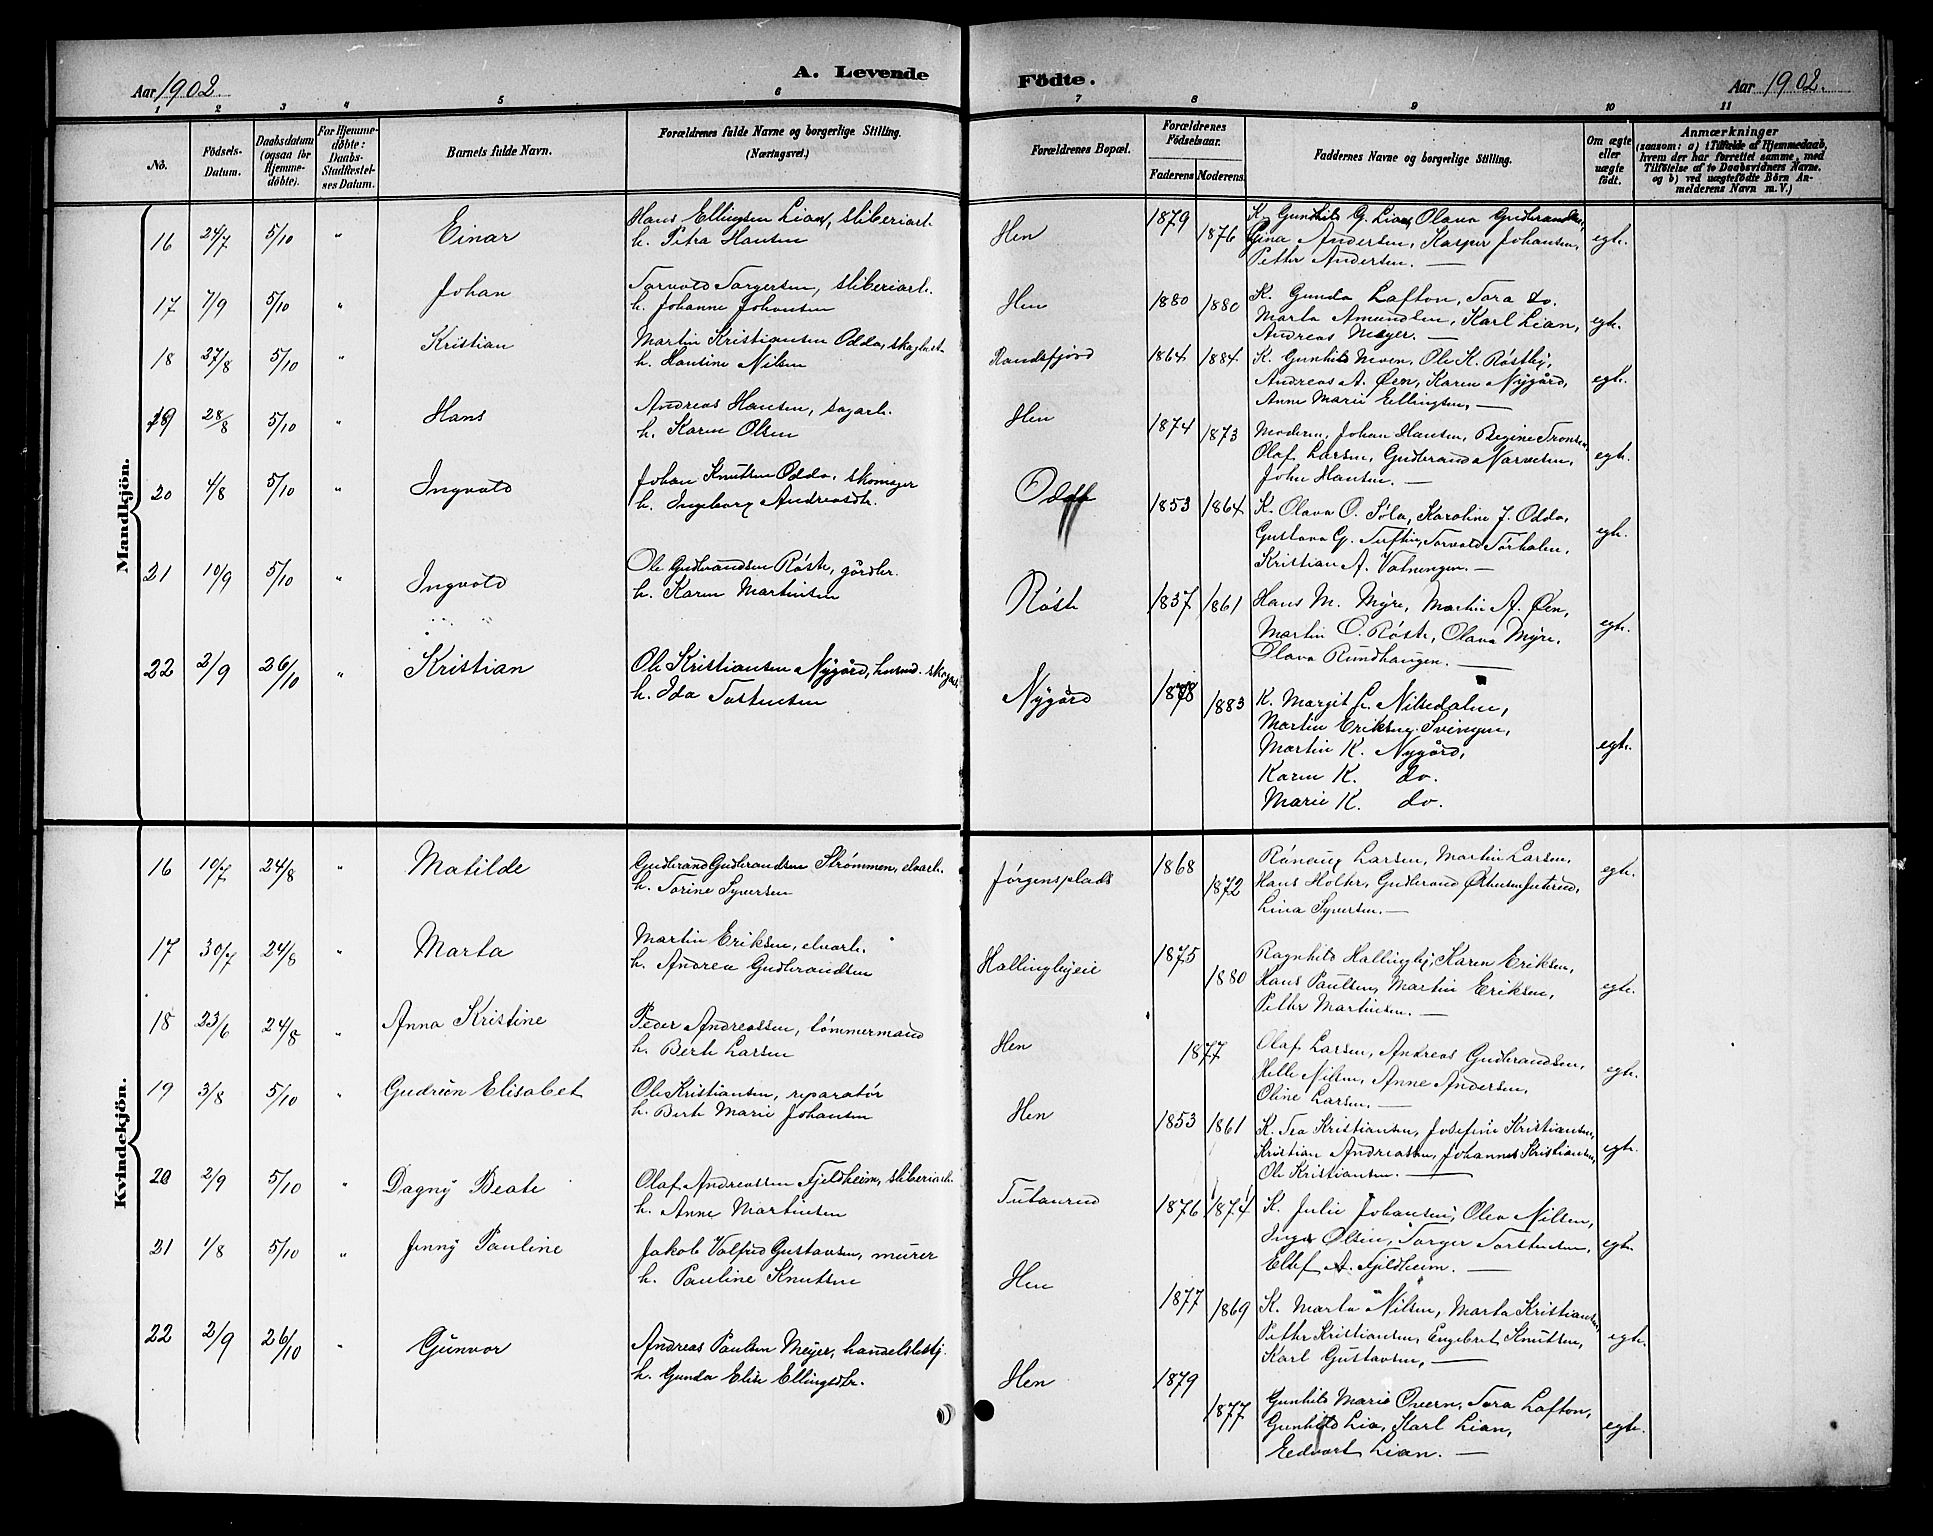 Aar 1902.
A. Levende
Födte.
Aar 1902.
1 2 3 4 5 6 7 8 9 10 11
No.
Födsels-Datum.
Daabsdatum (ogsaa for Hjemmedöbte).
For Hjemmedöbte: Daabs-Stadfæstelses Datum.
Barnets fulde Navn.
Forældrenes fulde Navne og borgerlige Stilling.
(Næringsvei.)
Forældrenes Bopæl.
Forældrenes Födselsaar.
Faderens Moderens.
Faddernes Navne og borgerlige Stilling.
Om ægte eller uægte födt.
Anmærkninger
(saasom: a) i Tilfælde af Hjemmedaab,
hvem der har forrettet samme, med
Tilföielse af to Daabsvidners Navne,
og b) ved uægtefödte Börn Anmelderens Navn m. V.)
Mandkjön.
16 24/7 5/10 " Einar
Hans Ellingsen Lian, sliberiarb.
h. Petra Hansen
Hen 1879 1876
K. Gunhild G. Lian, Olava Gudbrandsen,
Gina Andersen, Kasper Johansen,
Petter Andersen. —
egte.
17 7/9 5/10 " Johan
Torvold Torgersen, sliberiarb.
h. Johanne Johansen
Hen 1880 1880
K. Gunda Lafton, Tora do.
Marta Amundsen, Karl Lian,
Andreas Meyer. —
egte.
18 27/8 5/10 " Kristian
Martin Kristiansen Odda,
h. Hansine Nilsen
Randsfjord 1864 1884
K. Gunhild Moen, Ole K. Røstby,
Andreas A. Øen, Karen Nygård,
Anne Marie Ellingsen, —
egte.
19 28/8 5/10 " Hans
Andreas Hansen, sagarb.
h. Karen Olsen
Hen 1874 1873
Moderen, Johan Hansen, Regine Tronsen,
Olaf Larsen, Gudbrand Narvesen,
John Hansen. —
egte.
20 4/8 5/10 " Ingvold
Johan Knutsen Odda, skomager
h. Ingeborg Andreasdtr.
1853 1864
K. Olava O. Søla, Karoline J. Odda,
Gustava G. Tuftin, Torvald
Kristian A. Vatningen. —
egte.
21 10/9 5/10 Ingvold
Ole Gudbrandsen Røste, gårdbr.
h. Karen Martinsen
Røste 1857 1861
Hans M. Myre, Martin A. Øen,
Martin O. Røste, Olava Myre,
Olava Rundhaugen. —
egte.
22 2/9 26/10 " Kristian
Ole Kristiansen Nygård, husmd.
h. Ida Tostensen
Nygård 1878 1883
K. Margit L. Nilsedalen,
Martin Eriksen Svingen,
Martin K. Nygård,
Karen K. do.
Marie K. do.
egte.
Kvindekjön.
16 10/7 24/8 " Matilde
Gudbrand Gudbrandsen Strømmen, elvarb.
h. Torine Syversen
Jørgensplads 1868 1872
Rønaug Larsen, Martin Larsen,
Hans Holter, Gudbrand
Lina Syversen. —
egte.
17 30/7 24/8 " Marta
Martin Eriksen, elvarb.
h. Andrea Gudbrandsen
Hallingbyeie 1875 1880
Ragnhild Hallingby, Karen Eriksen,
Hans Paulsen, Martin Eriksen,
Petter Martinsen. —
egte.
18 23/6 24/8 " Anna Kristine
Peder Andreassen, tømmermand
h. Berte Larsen
Hen 1877
Olaf Larsen, Andreas Gudbrandsen,
Helle Nilsen, Anne Andersen,
Oline Larsen. —
egte.
19 3/8 5/10 " Gudrun Elisabet
Ole Kristiansen, reparatør
h. Berte Marie Johansen
Hen 1853 1861
K. Tea Kristiansen, Josefine Kristiansen,
Kristian Andreassen, Johannes Kristiansen,
Ole Kristiansen. —
egte.
20 2/9 5/10 " Dagny Beate
Olaf Andreassen Fjeldheim, sliberiarb.
h. Anne Martinsen
Tutanrud 1876 1874
K. Julie Johansen, Olea Nilsen,
Inga Olsen, Torger Torstensen,
Ellef A. Fjeldheim. —
egte.
21 1/8 5/10 " Jenny Pauline
Jakob Valfrid Gustavsen, murer
h. Pauline Knutsen
Hen 1877 1869
K. Marta Nilsen, Marta Kristiansen,
Petter Kristiansen, Engebret Knutsen,
Karl Gustavsen, —
egte.
22 2/9 26/10 " Gunvor
Andreas Paulsen Meyer, handelsbestj.
h. Gunda Elise Ellingsdtr.
Hen 1879 1877
Gunhild Marie Overn, Tora Lafton,
Gunhild Lian, Karl Lian,
Edvart Lian. —
egte.